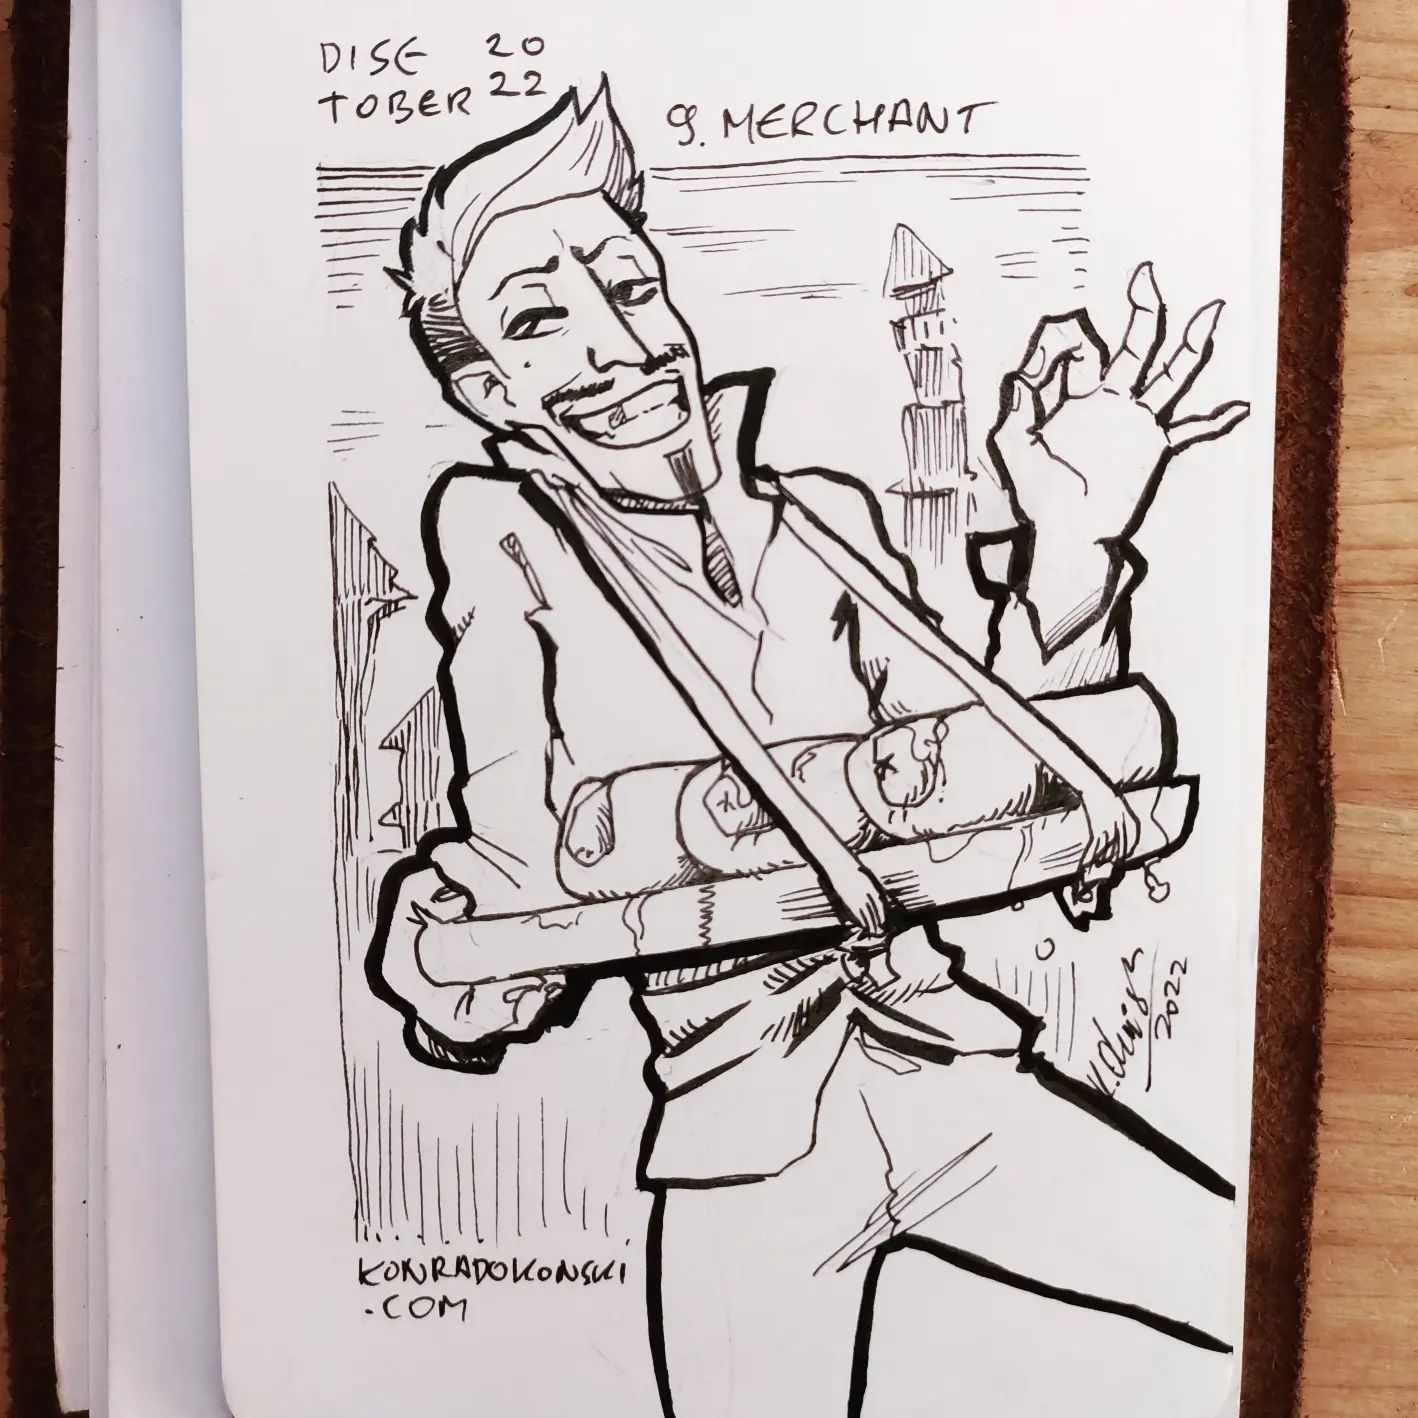 DISE 20
TOBER 22
9. MERCHANT
2022
KONRADOKONSKI
.COM